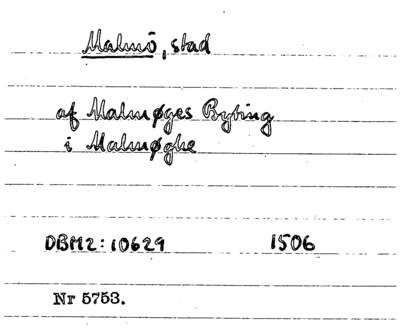 Malmö, stad
af Malmøges Byting
i Malmøghe
DBM2:10629 1506
Nr 5753.